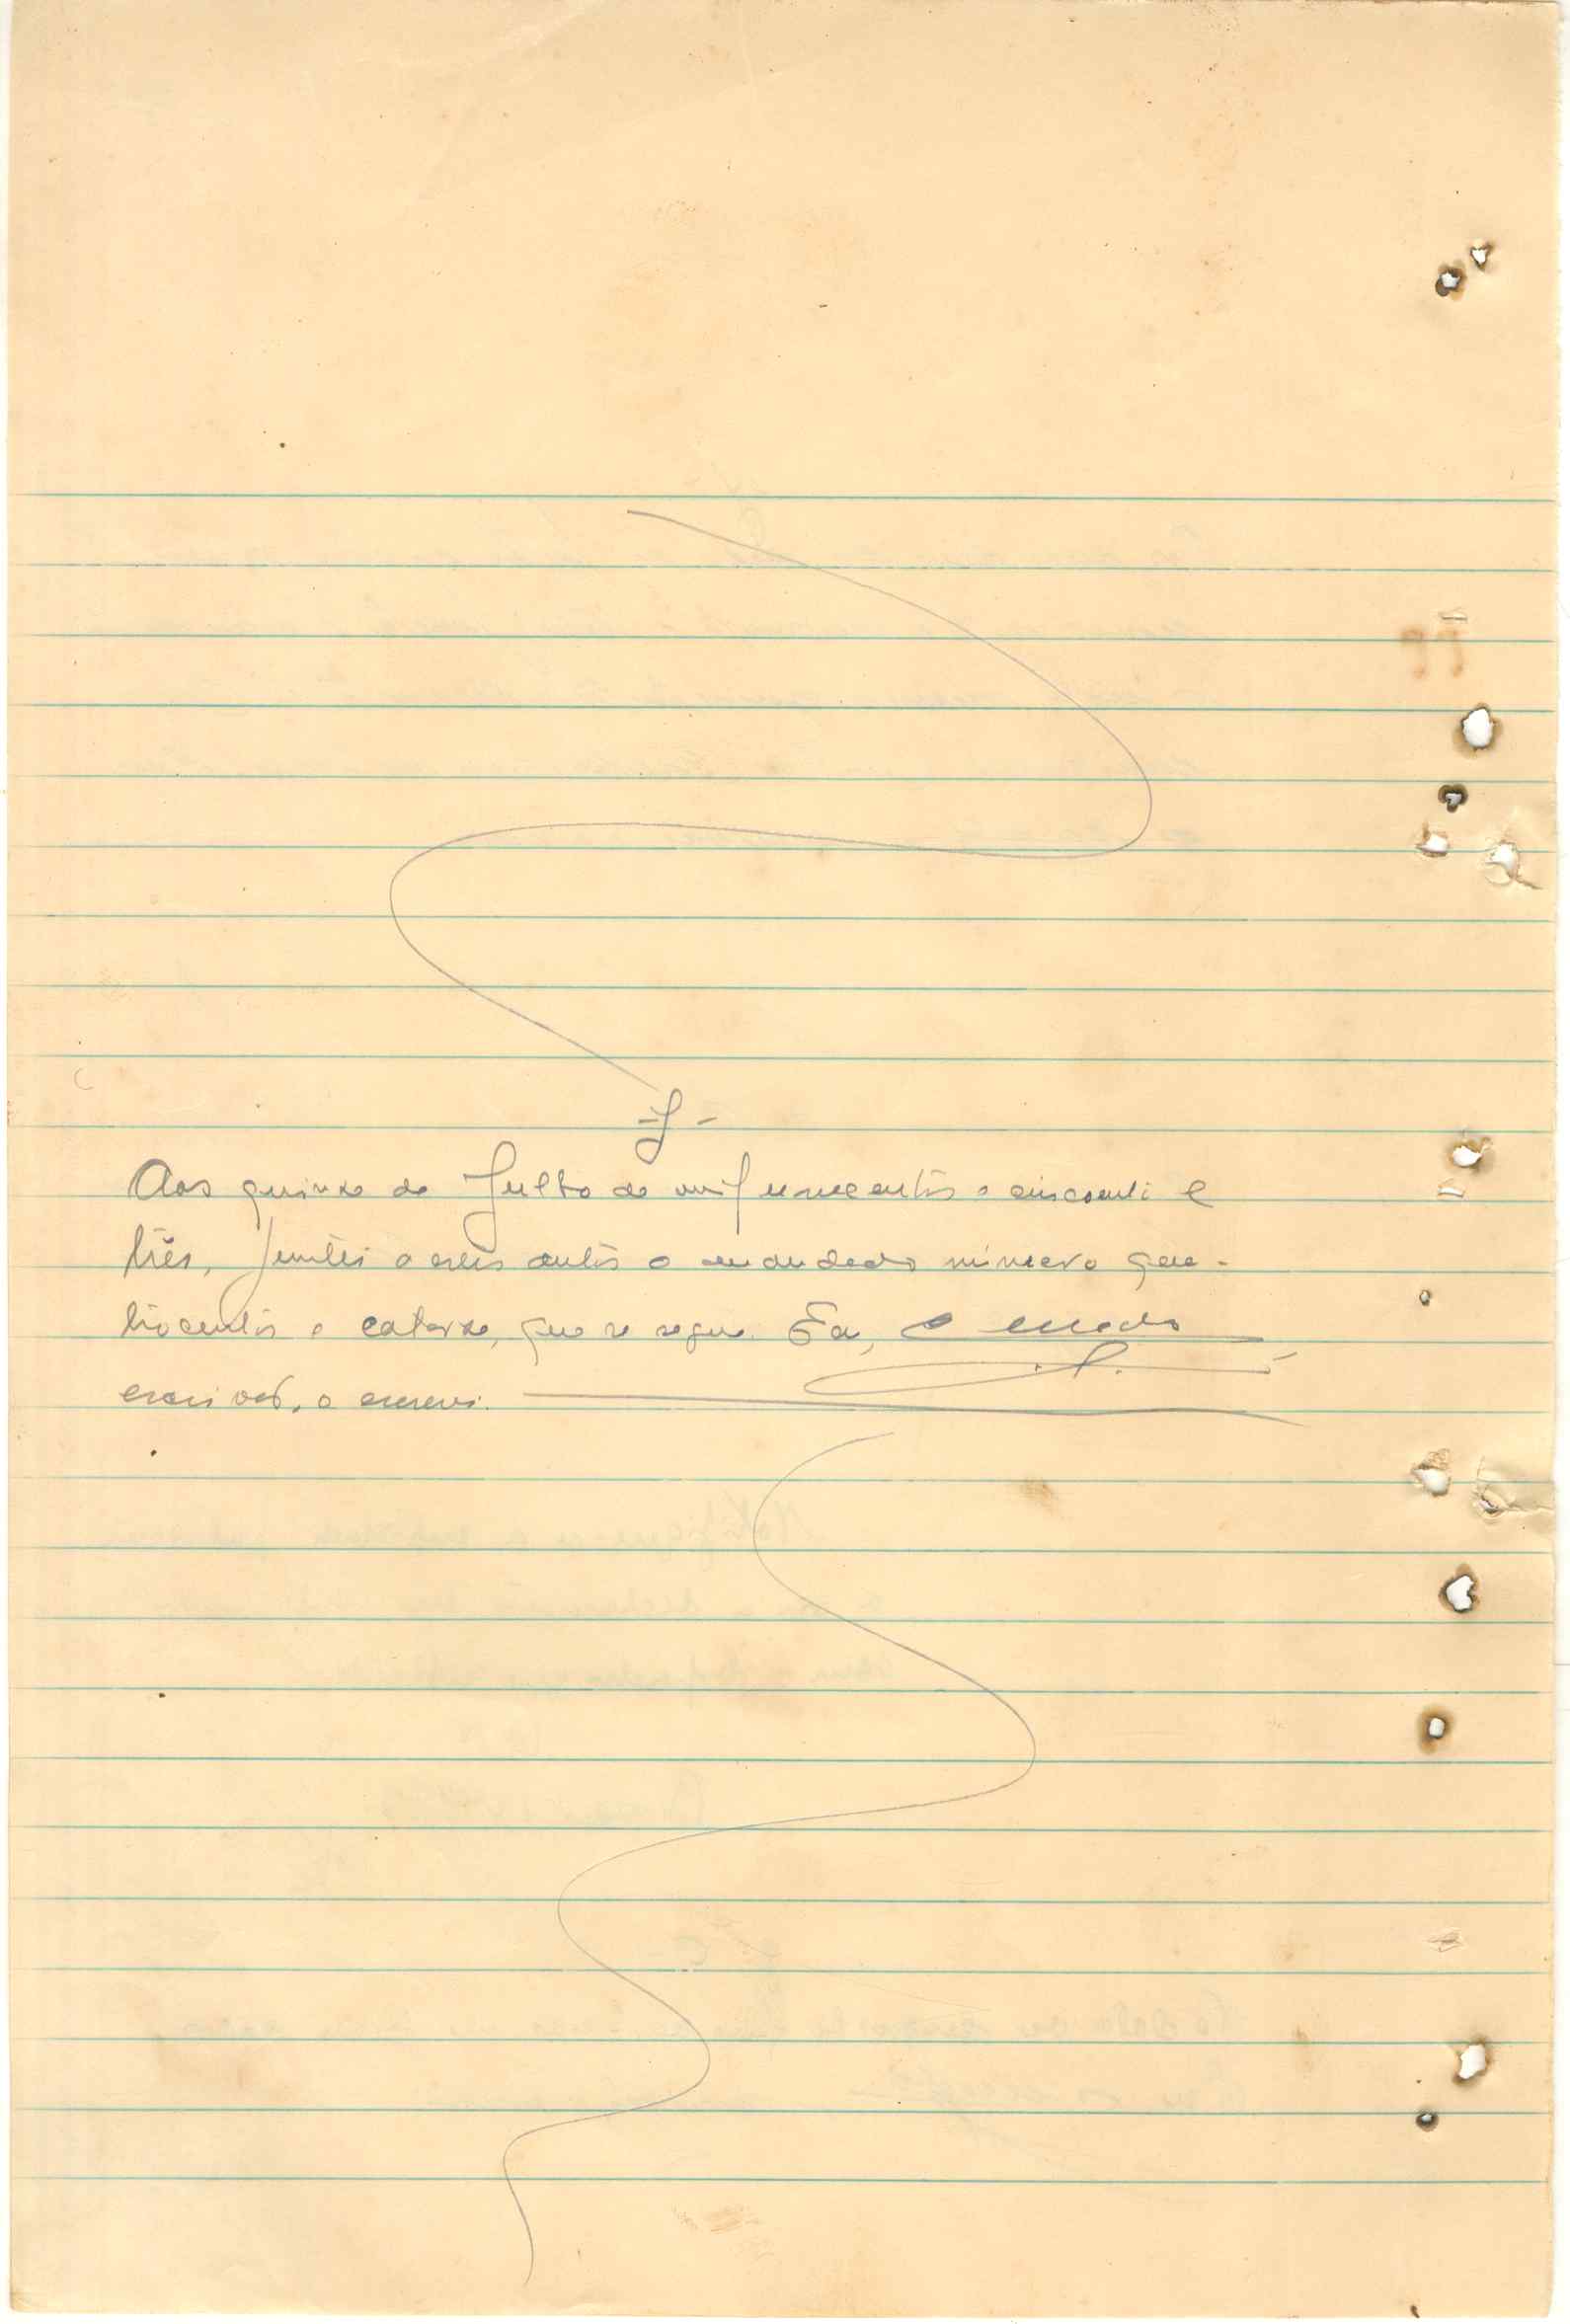 -J-
Aos quinze de Julho de mil novecentos e cincoenta e
três, juntei a estes autos o mandado número qua-
trocentos e catorze, que se segue. Eu,
escrivão, o escrevi.